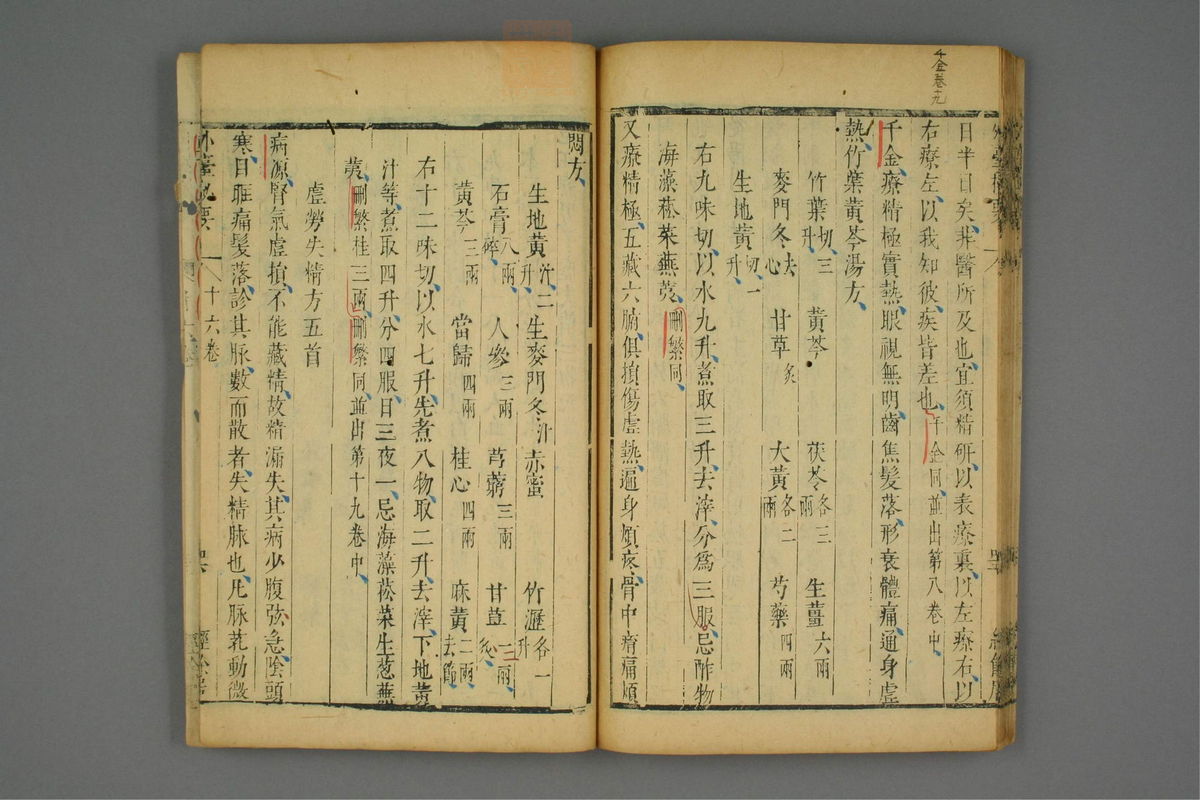 千金卷十九
日半日矣非醫所及也宜須精研以表療裏以左療右以
右療左以我知彼疾皆差也千金同並出第八卷中
千金療精極實熱眼視無明齒焦髮落形衰體痛通身虛
熱竹葉黃芩湯方
竹葉切三升 黃芩 茯苓各三兩 生薑六兩
麥門冬去心 甘草炙 大黃各二兩 芍藥四兩
生地黃切一升
右九味切以水九升煮取三升去滓分為三服忌酢物
海藻菘菜蕪荑刪繁同
又療精極五藏六腑俱損傷虛熱遍身煩疼骨中痟痛煩
悶方
生地黃汁二升 生麥門冬汁 赤蜜 竹瀝各一升
石膏八兩碎 人參三兩 芎藭三兩 甘草二兩炙
黃芩三兩 當歸四兩 桂心四兩 麻黃二兩去節
右十二味切以水七升先煮八物取二升去滓下地黃
汁等煮取四升分四服日三夜一忌海藻菘菜生葱蕪
荑刪繁桂三兩刪繁同並出第十九卷中
虛勞失精方五首
病源腎氣虛損不能藏精故精漏失其病少腹弦急陰頭
寒目眶痛髮落診其脉數而散者失精脉也凡脉芤動微
外臺秘要 十六卷